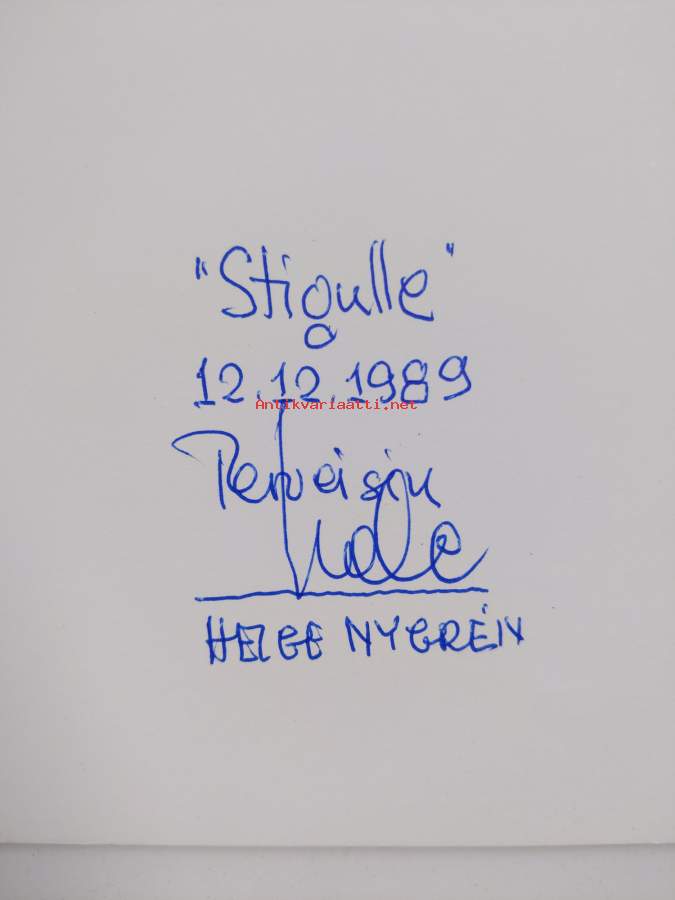 "Stigulle"
12.12.1989
Antikvariaatti.net
Terveisin
HELGE NYGRÉN